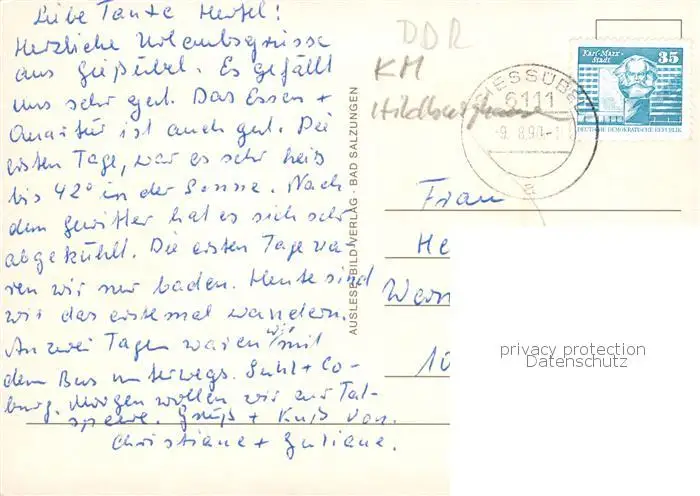 Liebe Tante Hertel!
Herzliche Urlaubsgrüsse
aus Gießübel. Es gefällt
uns sehr gut. Das Essen +
Quartier ist auch gut. Die
ersten Tage, war es sehr heiß
bis 42° in der Sonne. Nach
dem Gewitter hat es sich sehr
abgekühlt. Die ersten Tage wa-
ren wir nur baden. Heute sind
wir das erstemal wandern.
An zwei Tagen waren wir mit
dem Bus unterwegs. Suhl + Co-
burg. Morgen wollen wir zur Tal-
sperre. Gruß + Kuß von
Christiane + Juliane.
AUSLESE-BILD-VERLAG · BAD SALZUNGEN
DDR
KM
Hildburghausen
GIESSÜBEL
6111
-9.8.90-1
a
Karl-Marx-
Stadt
35
DEUTSCHE DEMOKRATISCHE REPUBLIK
Frau
He
Wern
10
privacy protection
Datenschutz